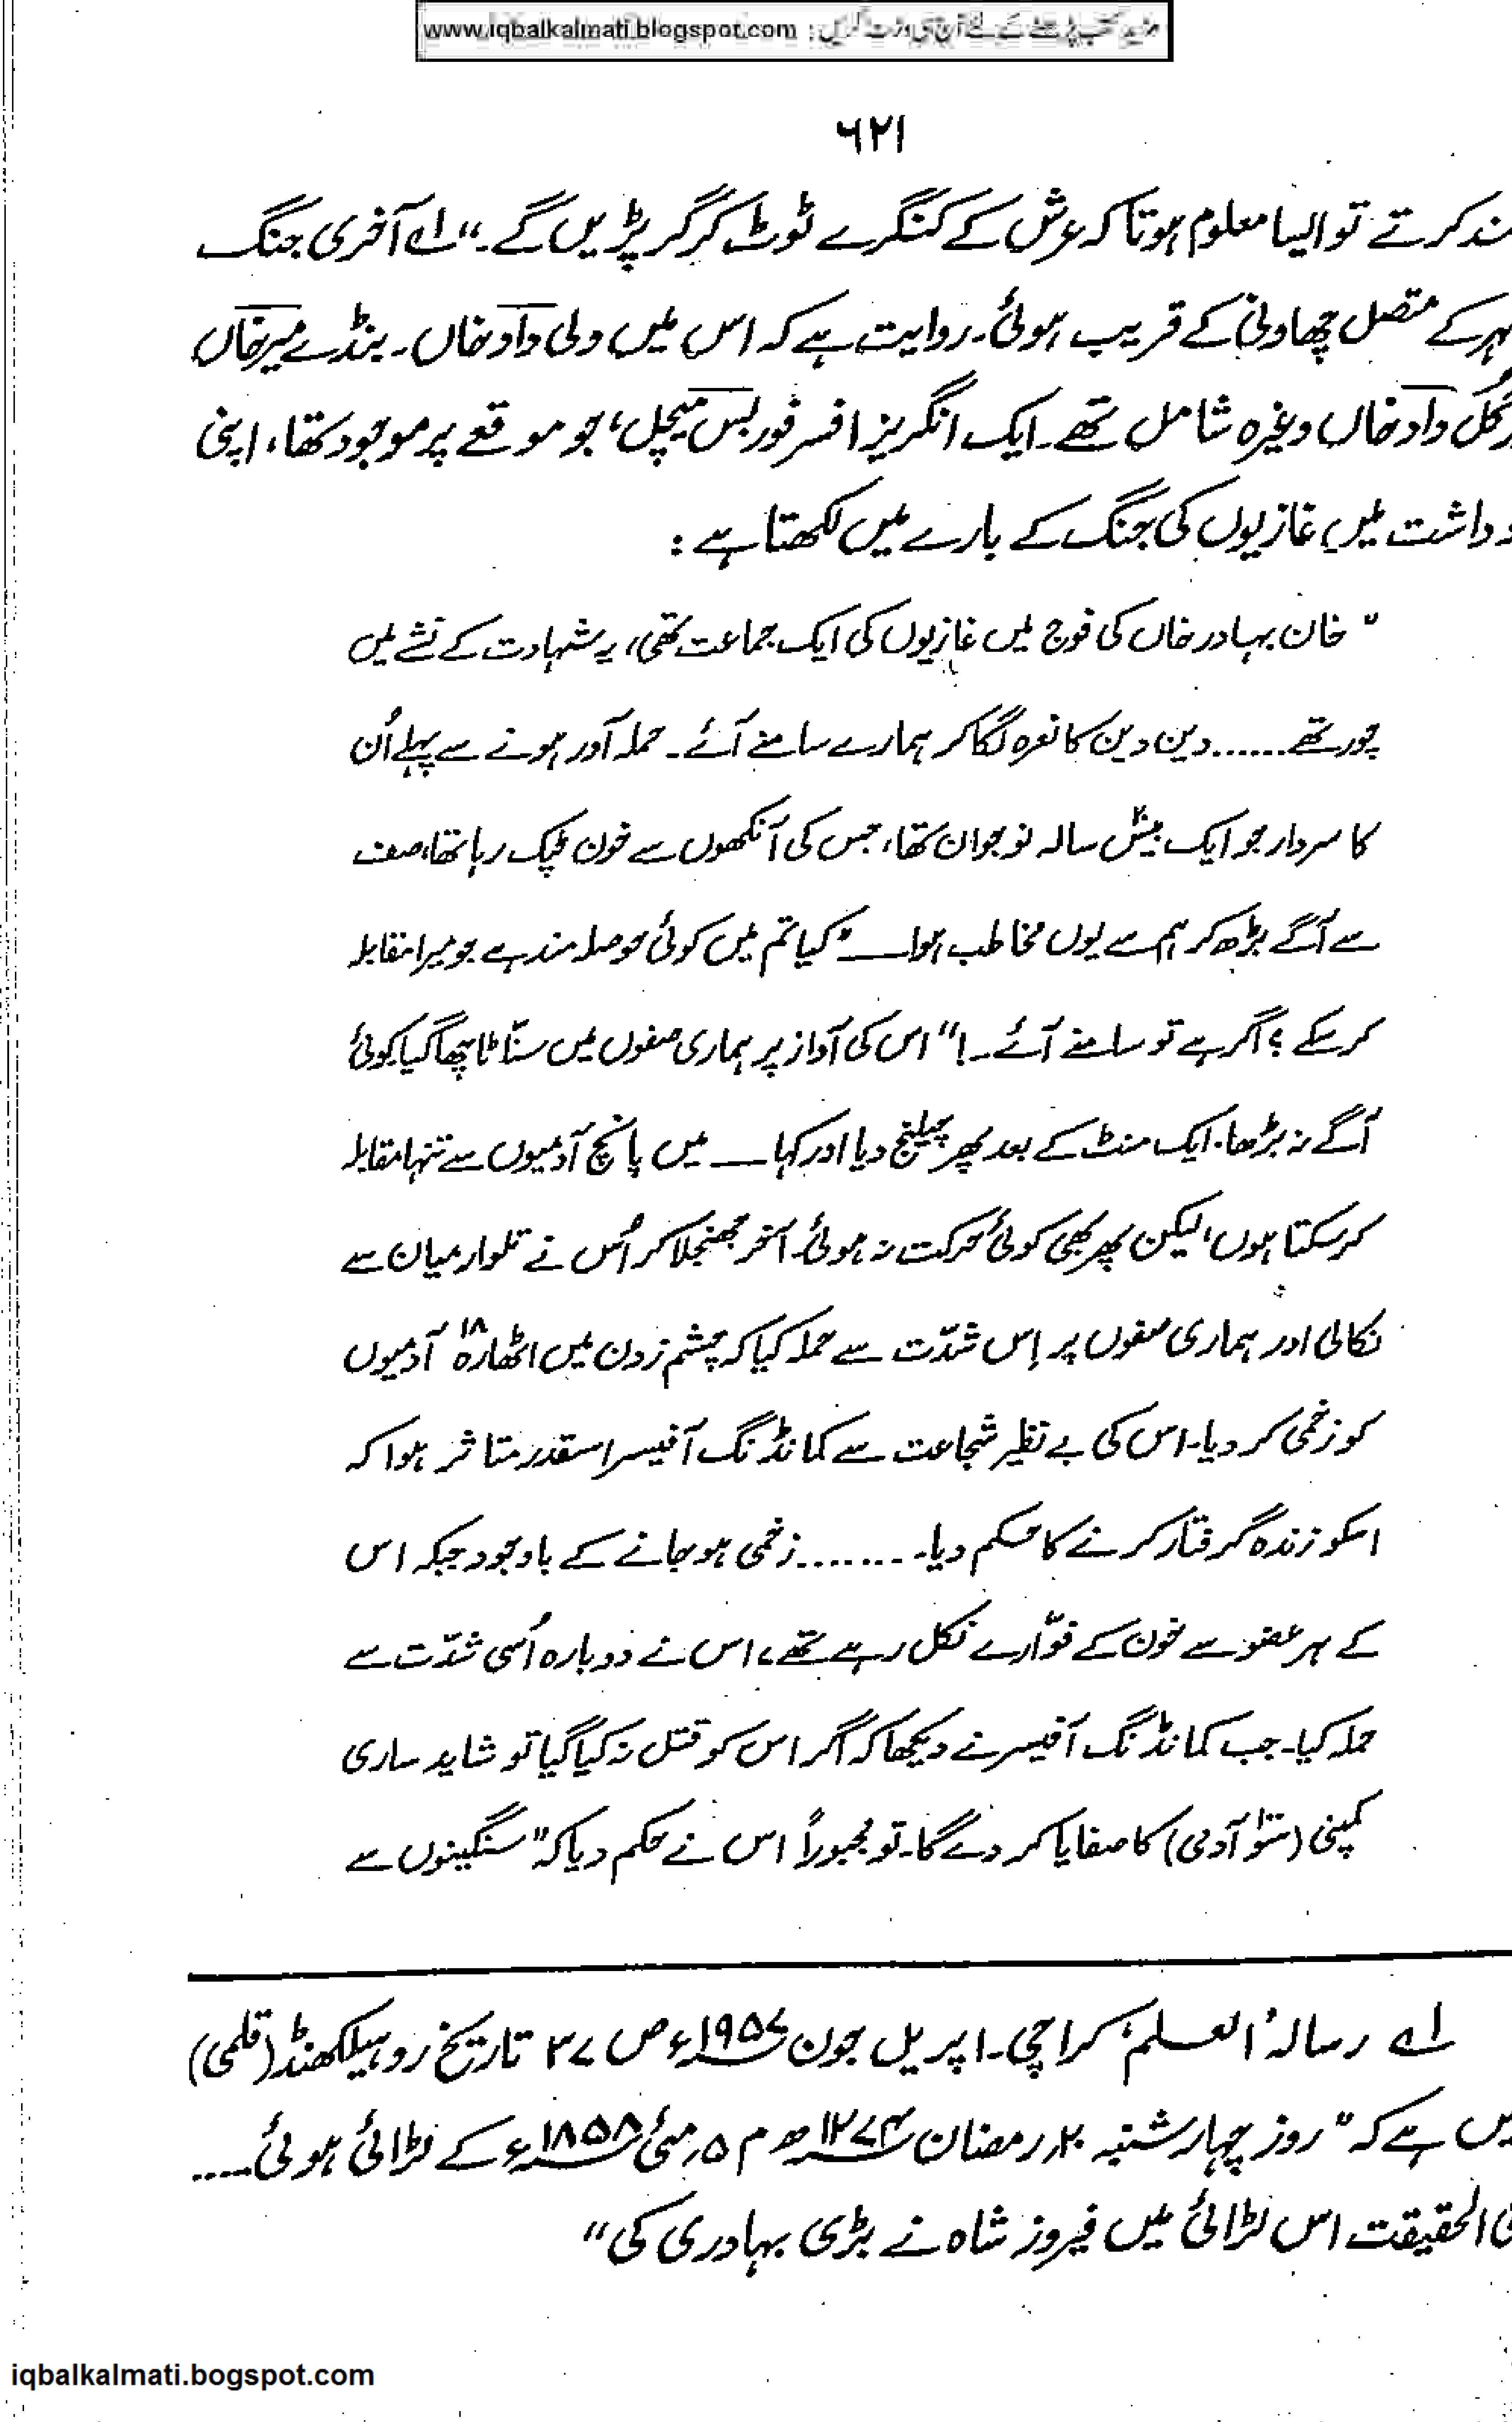 مزید کتب پڑھنے کے لئے آج ہی وزٹ کریں : www.iqbalkalmati.blogspot.com
۶۲۱
ند کرتے تو ایسا معلوم ہوتا کہ عرش کے کنگرے ٹوٹ کر گر پڑیں گے۔" لے آخری جنگ
ہر کے متصل چھاونی کے قریب ہوئی۔ روایت ہے کہ اس میں ولی داد خاں۔ بنڈے میر خاں
گل داد خاں وغیرہ شامل تھے۔ ایک انگریز افسر فوربس میچل، جو موقعے پر موجود تھا، اپنی
داشت میں غازیوں کی جنگ کے بارے میں لکھتا ہے :
" خان بہادر خاں کی فوج میں غازیوں کی ایک جماعت تھی، یہ شہادت کے نشے میں
چور تھے......دین دین کا نعرہ لگا کر ہمارے سامنے آئے۔ حملہ آور ہونے سے پہلے اُن
کا سردار جو ایک بیس۲۰ سالہ نوجوان تھا، جس کی آنکھوں سے خون ٹپک رہا تھا، صف
سے آگے بڑھ کر ہم سے یوں مخاطب ہوا ــــ "کیا تم میں کوئی حوصلہ مند ہے جو میرا مقابلہ
کر سکے ؟ اگر ہے تو سامنے آئے ۔!" اس کی آواز پر ہماری صفوں میں سنّاٹا چھا گیا کوئی
آگے نہ بڑھا۔ ایک منٹ کے بعد پھر چیلنج دیا اور کہا ــــ میں پانچ آدمیوں سے تنہا مقابلہ
کر سکتا ہوں، لیکن پھر بھی کوئی حرکت نہ ہوئی۔ آخر جھنجلا کر اُس نے تلوار میان سے
نکالی اور ہماری صفوں پر اِس شدّت سے حملہ کیا کہ چشم زدن میں اٹھارہ۱۸ آدمیوں
کو زخمی کر دیا۔ اس کی بے نظیر شجاعت سے کمانڈنگ آفیسر اسقدر متاثر ہوا کہ
اسکو زندہ گرفتار کرنے کا حکم دیا۔ .......زخمی ہو جانے کے باوجود جبکہ اس
کے ہر عضو سے خون کے فوّارے نکل رہے تھے، اس نے دوبارہ اُسی شدّت سے
حملہ کیا۔ جب کمانڈنگ آفیسر نے دیکھا کہ اگر اس کو قتل نہ کیا گیا تو شاید ساری
کمپنی (سو۱۰۰ آدمی) کا صفایا کر دے گا۔ تو مجبوراً اس نے حکم دیا کہ "سنگینوں سے
لے رسالہ 'العلم' کراچی۔ اپریل جون ۱۹۵۷ء ص ۳۷ تاریخ روہیلکھنڈ (قلمی)
یں ہے کہ "روز چہار شنبہ ۲۰؍ رمضان ۱۲۷۴ھ م ۵؍ مئی ۱۸۵۸ء کے لڑائی ہوئی.....
ی الحقیقت اس لڑائی میں فیروز شاہ نے بڑی بہادری کی"
iqbalkalmati.bogspot.com